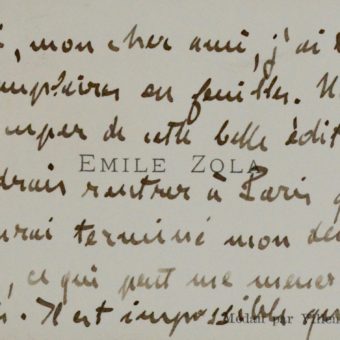 , mon cher ami, j'ai
mplaires en feuilles.
mper de cette belle édit
EMILE ZOLA
drais rentrer à Paris
urai terminé mon de
, ce qui peut me mener
. Il est impossible qu
Médan par Villen